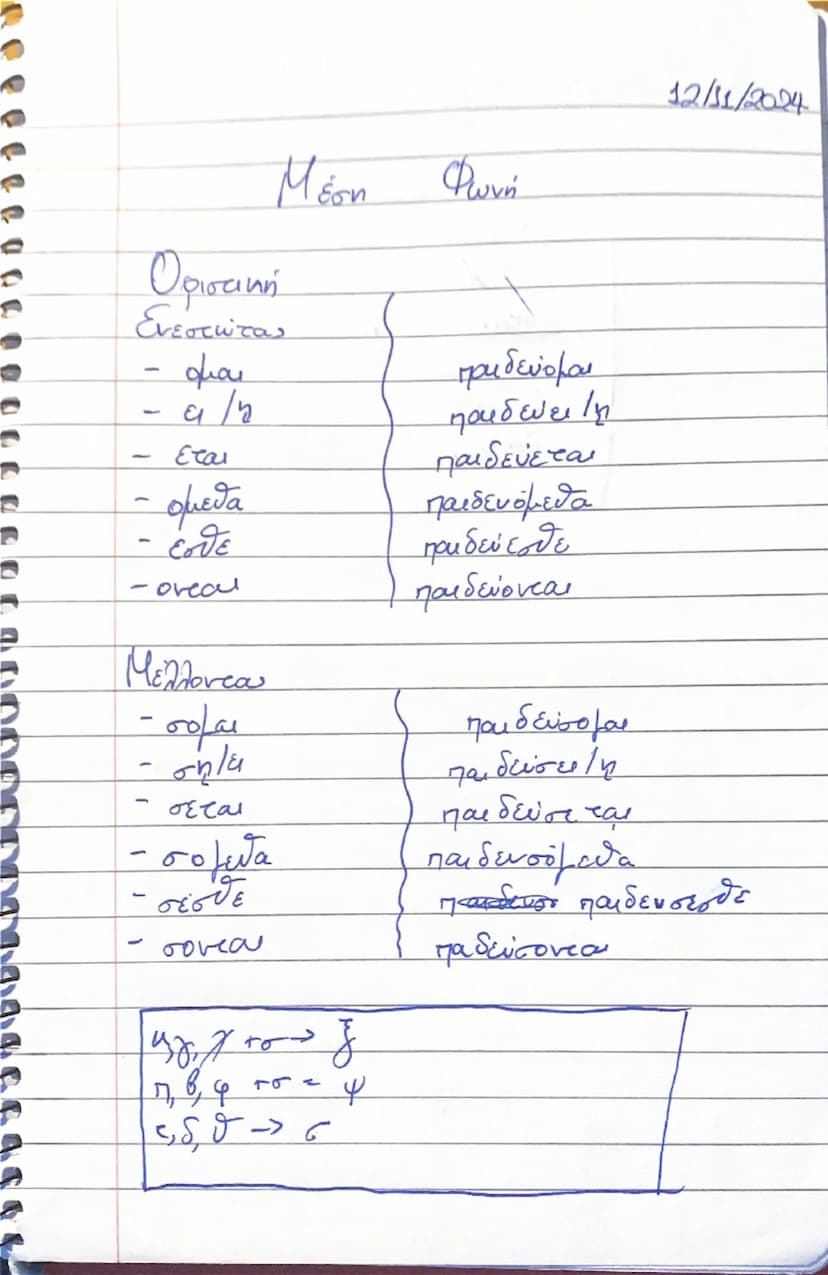 12/11/2024
Μέση Φωνή
Οριστική
Ενεστώτας
- ομαι παιδεύομαι
- ει /ῃ παιδεύει /ῃ
- εται παιδεύεται
- ομεθα παιδευόμεθα
- εσθε παιδεύεσθε
- ονται παιδεύονται
Μέλλοντας
- σομαι παιδεύσομαι
- ση/ει παιδεύσει /ῃ
- σεται παιδεύσεται
- σομεθα παιδευσόμεθα
- σεσθε παιδευσεσθε
- σονται παδεύσονται
κ, γ, χ +σ → ξ
π, β, φ +σ = ψ
τ, δ, θ → σ